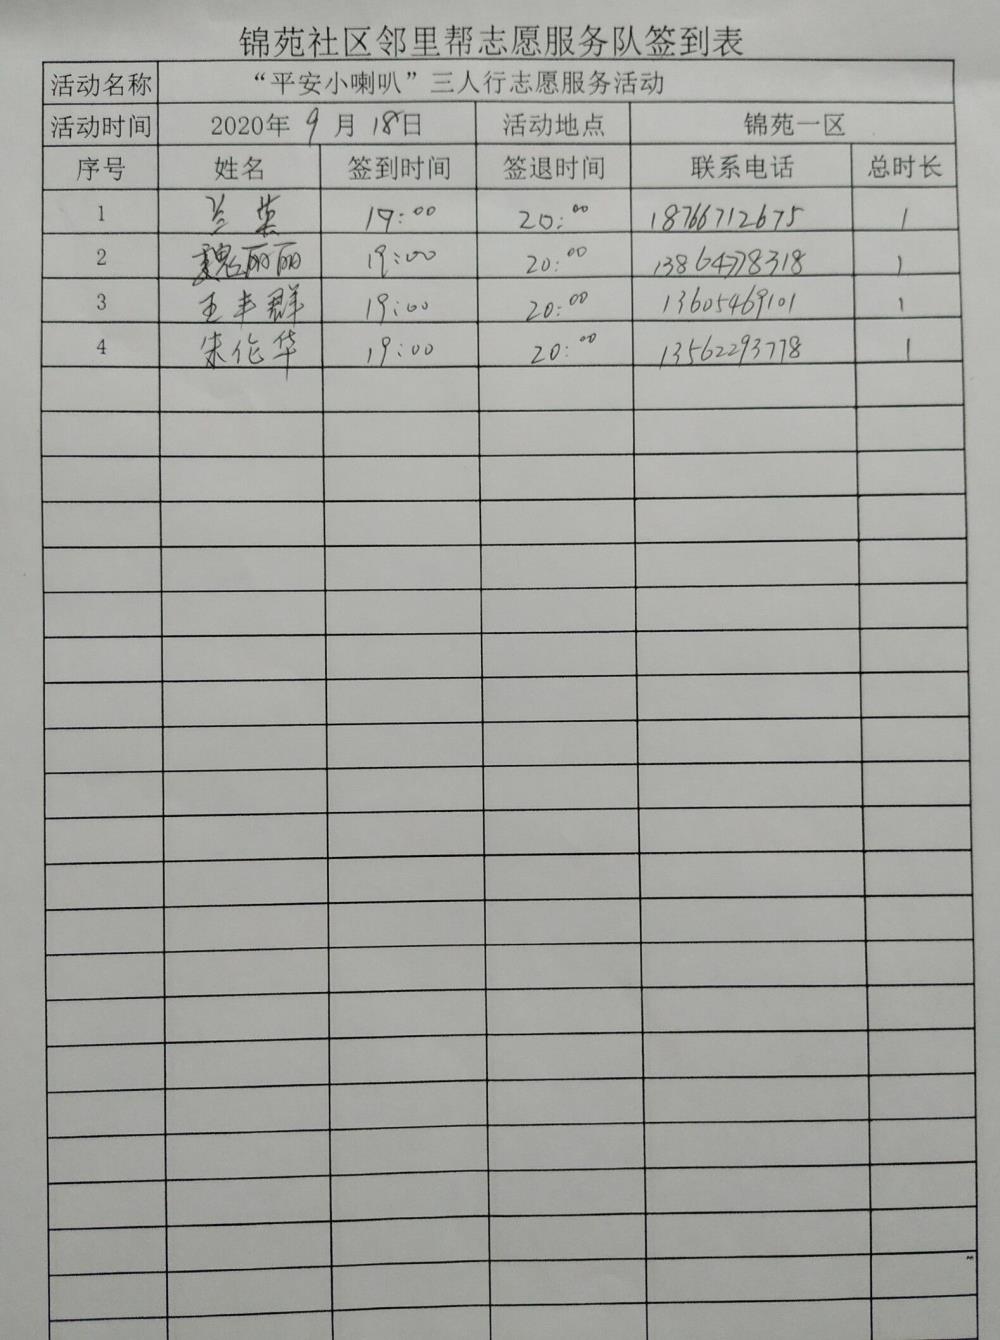 锦苑社区邻里帮志愿服务队签到表
活动名称 “平安小喇叭”三人行志愿服务活动
活动时间 2020年 9 月 18日 活动地点 锦苑一区
序号 姓名 签到时间 签退时间 联系电话 总时长
1 兰英 19:00 20:00 18766712675 1
2 魏丽丽 19:00 20:00 13864778318 1
3 王丰群 19:00 20:00 13605469101 1
4 朱作华 19:00 20:00 13562293778 1